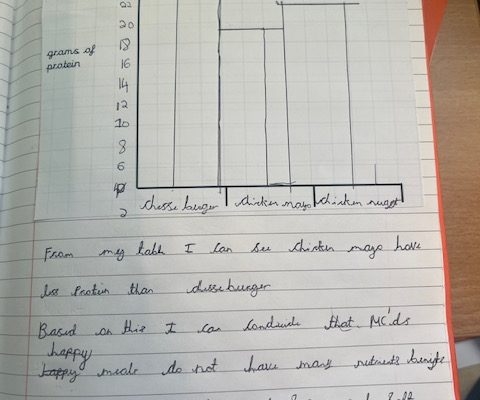 22
20
18
16
14
12
10
8
6
2
grams of
protein
chesse burger
chicken mayo
chicken nugget
From my table I can see chicken mayo have
less Protein than chesseburger
Based on this I can concluide that MC'ds
happy
happy meals do not have many nutrients benefits